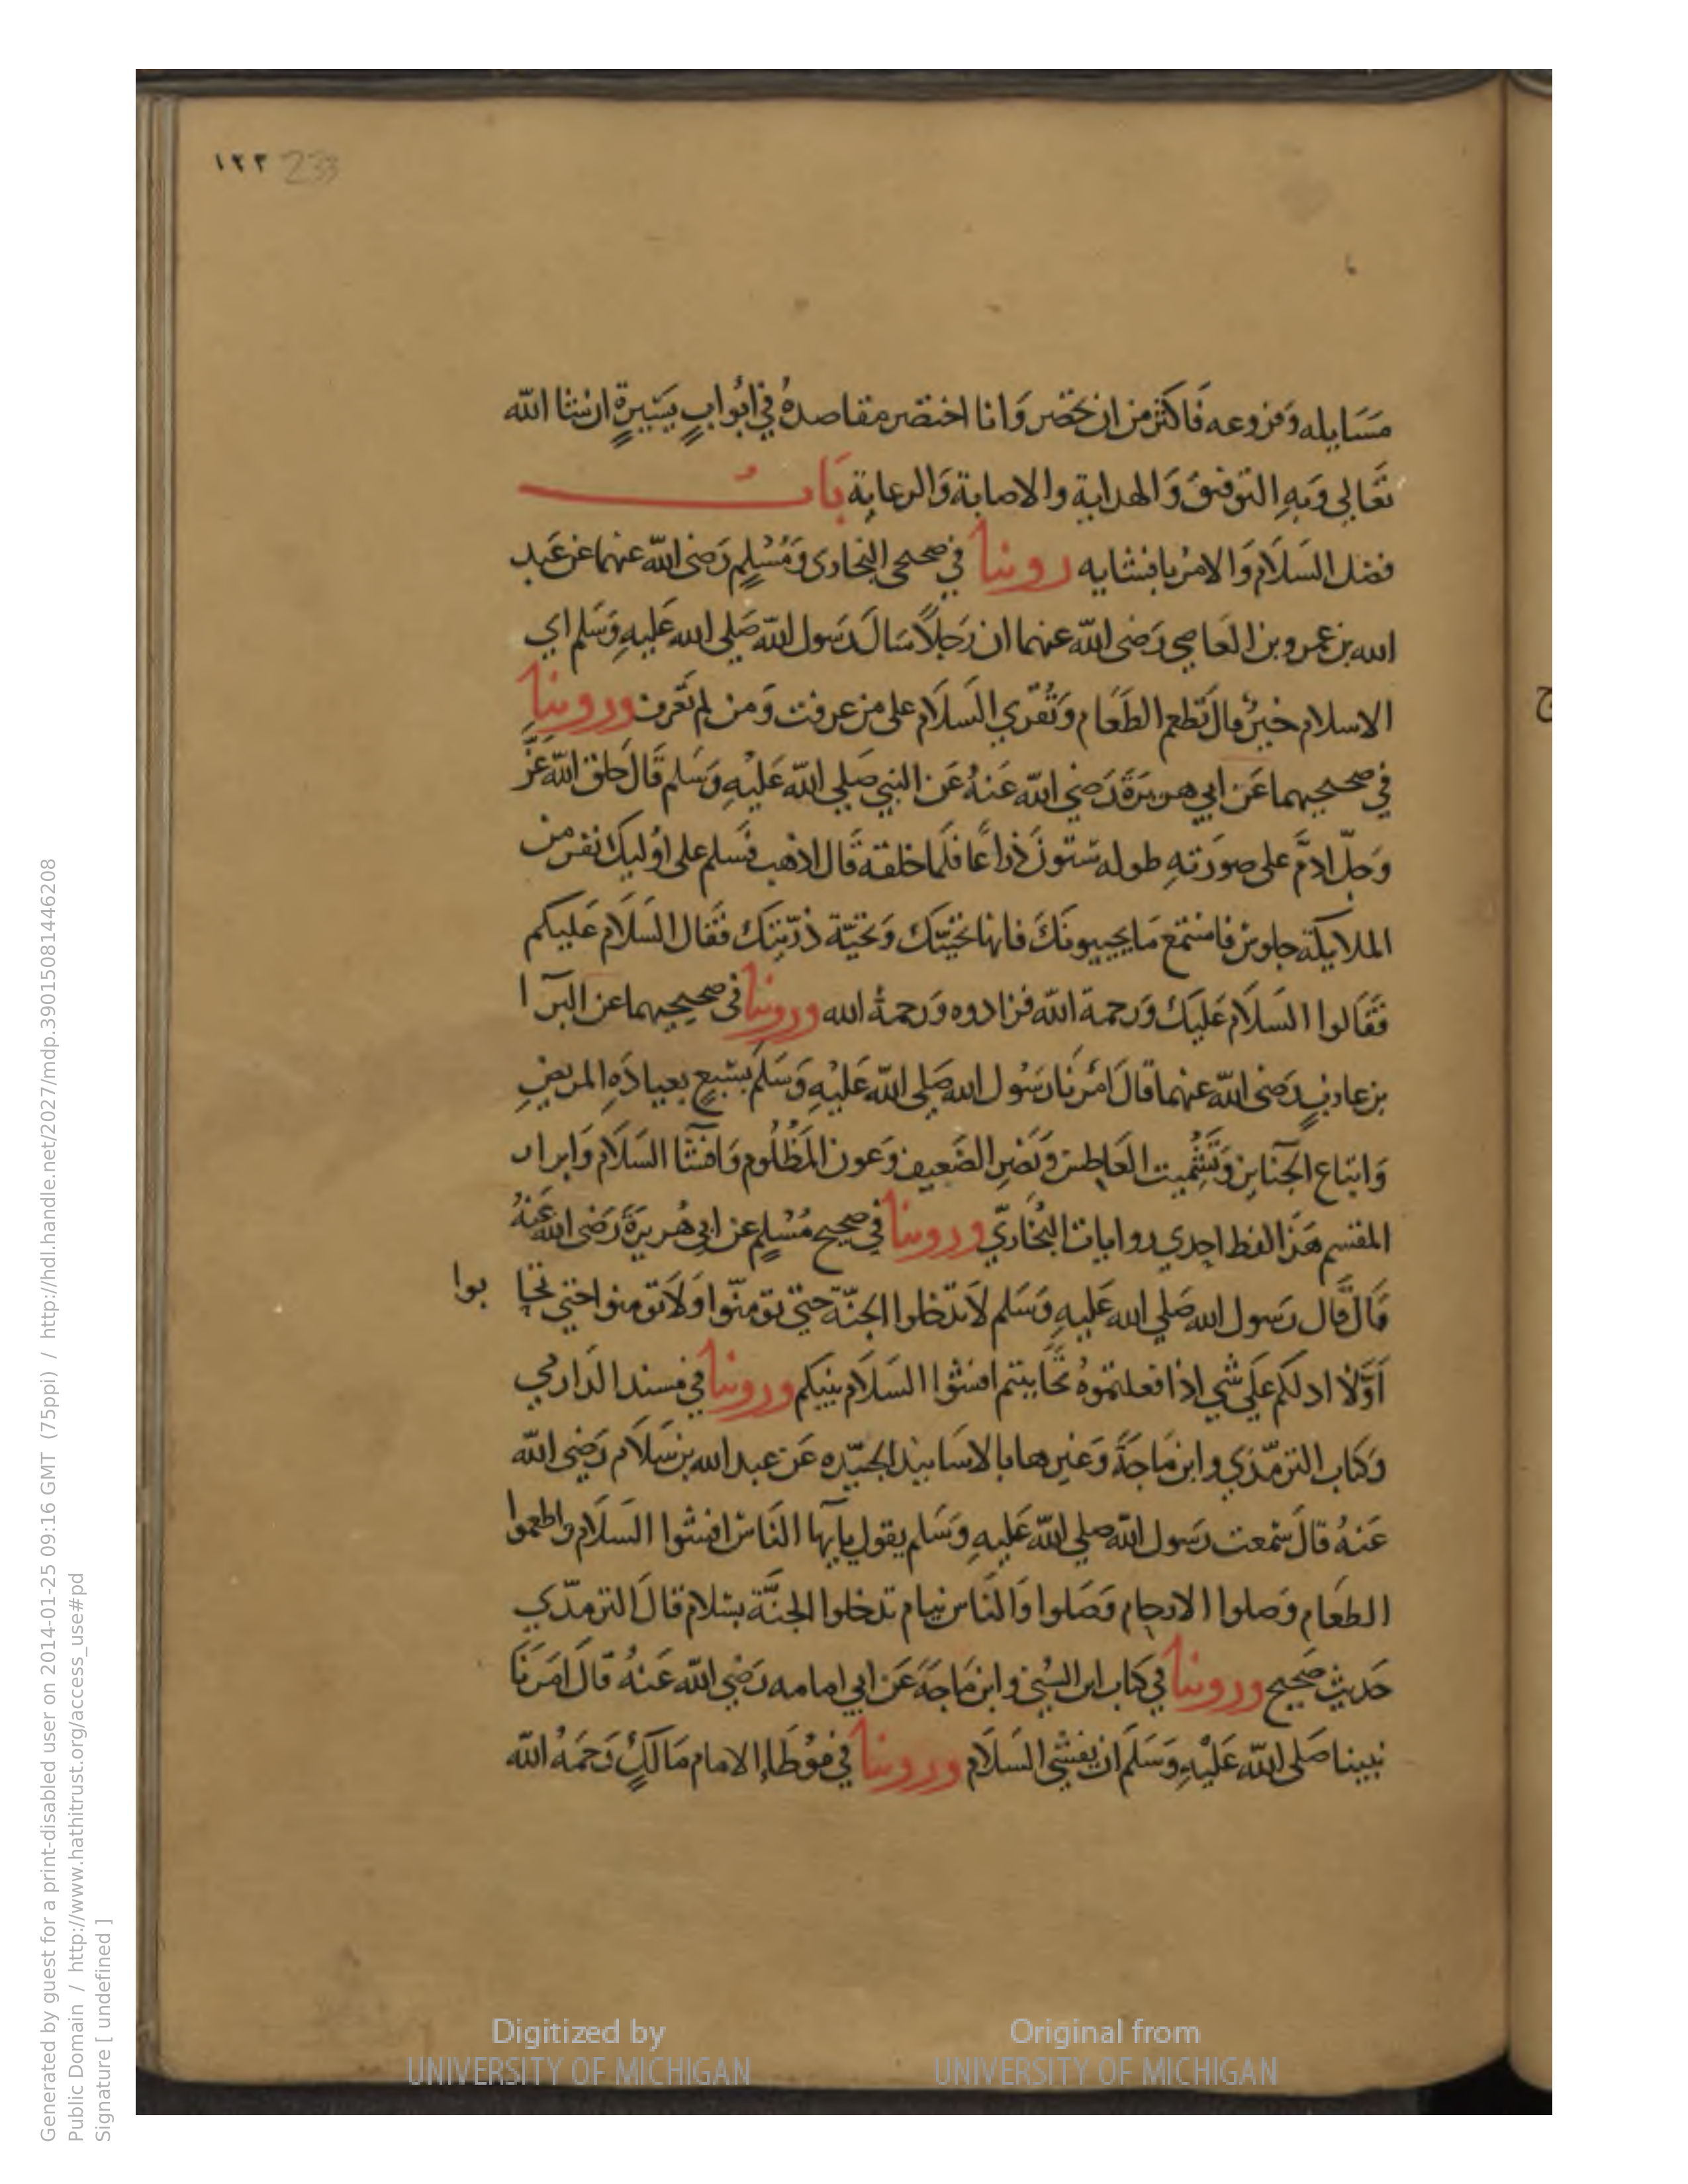 ١٢٣ 233
مَسَايله وَفروعه فَاكثر من ان تحصر وَانا اختصر مقاصدهُ في اَبوابٍ يَسيرةٍ ان شا الله
تَعَالي وَبهِ التوفيقُ وَالهداية والاصابة وَالرعاية بَابُ
فضل السَلَام وَالامرُ بافشايه روينا في صحيحي البخاري وَمُسْلِمٍ رَضي الله عنهما عن عَبد
الله بن عمرو بن العَاصي رَضي الله عنهما ان رَجلًا سَال رَسول الله صَلي الله عَليهِ وَسَلم اي
الاسلام خيرٌ قال تطعم الطَعَام وَتُقري السَلَام على من عرفت وَمن لم تَعرف وروينا
في صحيحيهما عَن ابي هريرَةَ رَضي الله عَنهُ عَن النبي صَلي الله عَليْهِ وَسَلم قَال خلق الله عَزَّ
وَجلّ ادَم على صورَتهِ طوله ستونَ ذراعًا فلما خلقه قَال اذهب فسَلم على اوُليك نفر من
الملايكة جلوسٌ فاستمع مَا يحييونكَ فانها تحيّتك وَتحيّة ذرّيتك فقَال السَلَام عَليكم
فقَالوا السَلَام عَليكَ وَرحمة الله فزادوه وَرحمةُ الله وروينا في صحيحيهما عن البرآ
بن عازبٍ رَضي الله عنهما قالَ امَرنَا رَسُول الله صَلي الله عَليْهِ وَسَلَم بسَبعٍ بعيادَهِ المريضِ
وَاتباع الجَنايز وَتشْمِيت العَاطِس وَنَصْر الضَعِيف وَعون المَظْلُوم وَافشَآ السَلَام وَابرار
المقسم هَذا لفظ احدي روايات البُخَاريّ وروينا في صحيح مُسْلِمٍ عن ابي هُريرَةَ رَضي الله عَنهُ
قالَ قَال رَسول الله صَلي الله عَليهِ وَسَلم لَا تدخلوا الجنّة حتي تومنّوا وَلَا تومنوا حتي تحا بوا
اَوَلَا ادلكم عَلي شي اذا فعلتموهُ تحَاببتم افشوا السَلَام بينكم وروينا في مسند الدَارمي
وَكتاب الترمّذي وابن مَاجَةَ وَغيرها بالاسَانيد الجيّده عَن عبد الله بن سَلَام رَضي الله
عَنهُ قالَ سَمعت رَسول الله صلي الله عَليهِ وَسَلم يقول يايها النَاسُ افشوا السَلَام واطعموا
الطعَام وَصلوا الارحام وَصَلوا وَالنَاس نيام تدخلوا الجنّة بسَلام قالَ الترمّذي
حَديث صَحيح وروينا في كتاب ابن السُني وابن مَاجَةَ عَن ابي امامه رَضي الله عَنهُ قالَ امَرنَا
نبينا صَلي الله عَليْهِ وَسَلَم ان يفشي السَلَام وروينا في مُوطَا الامام مَالكٍ رَحمَهُ الله
ج
Digitized by
UNIVERSITY OF MICHIGAN
Original from
UNIVERSITY OF MICHIGAN
Generated by guest for a print-disabled user on 2014-01-25 09:16 GMT (75ppi) / http://hdl.handle.net/2027/mdp.39015081446208
Public Domain / http://www.hathitrust.org/access_use#pd
Signature [ undefined ]